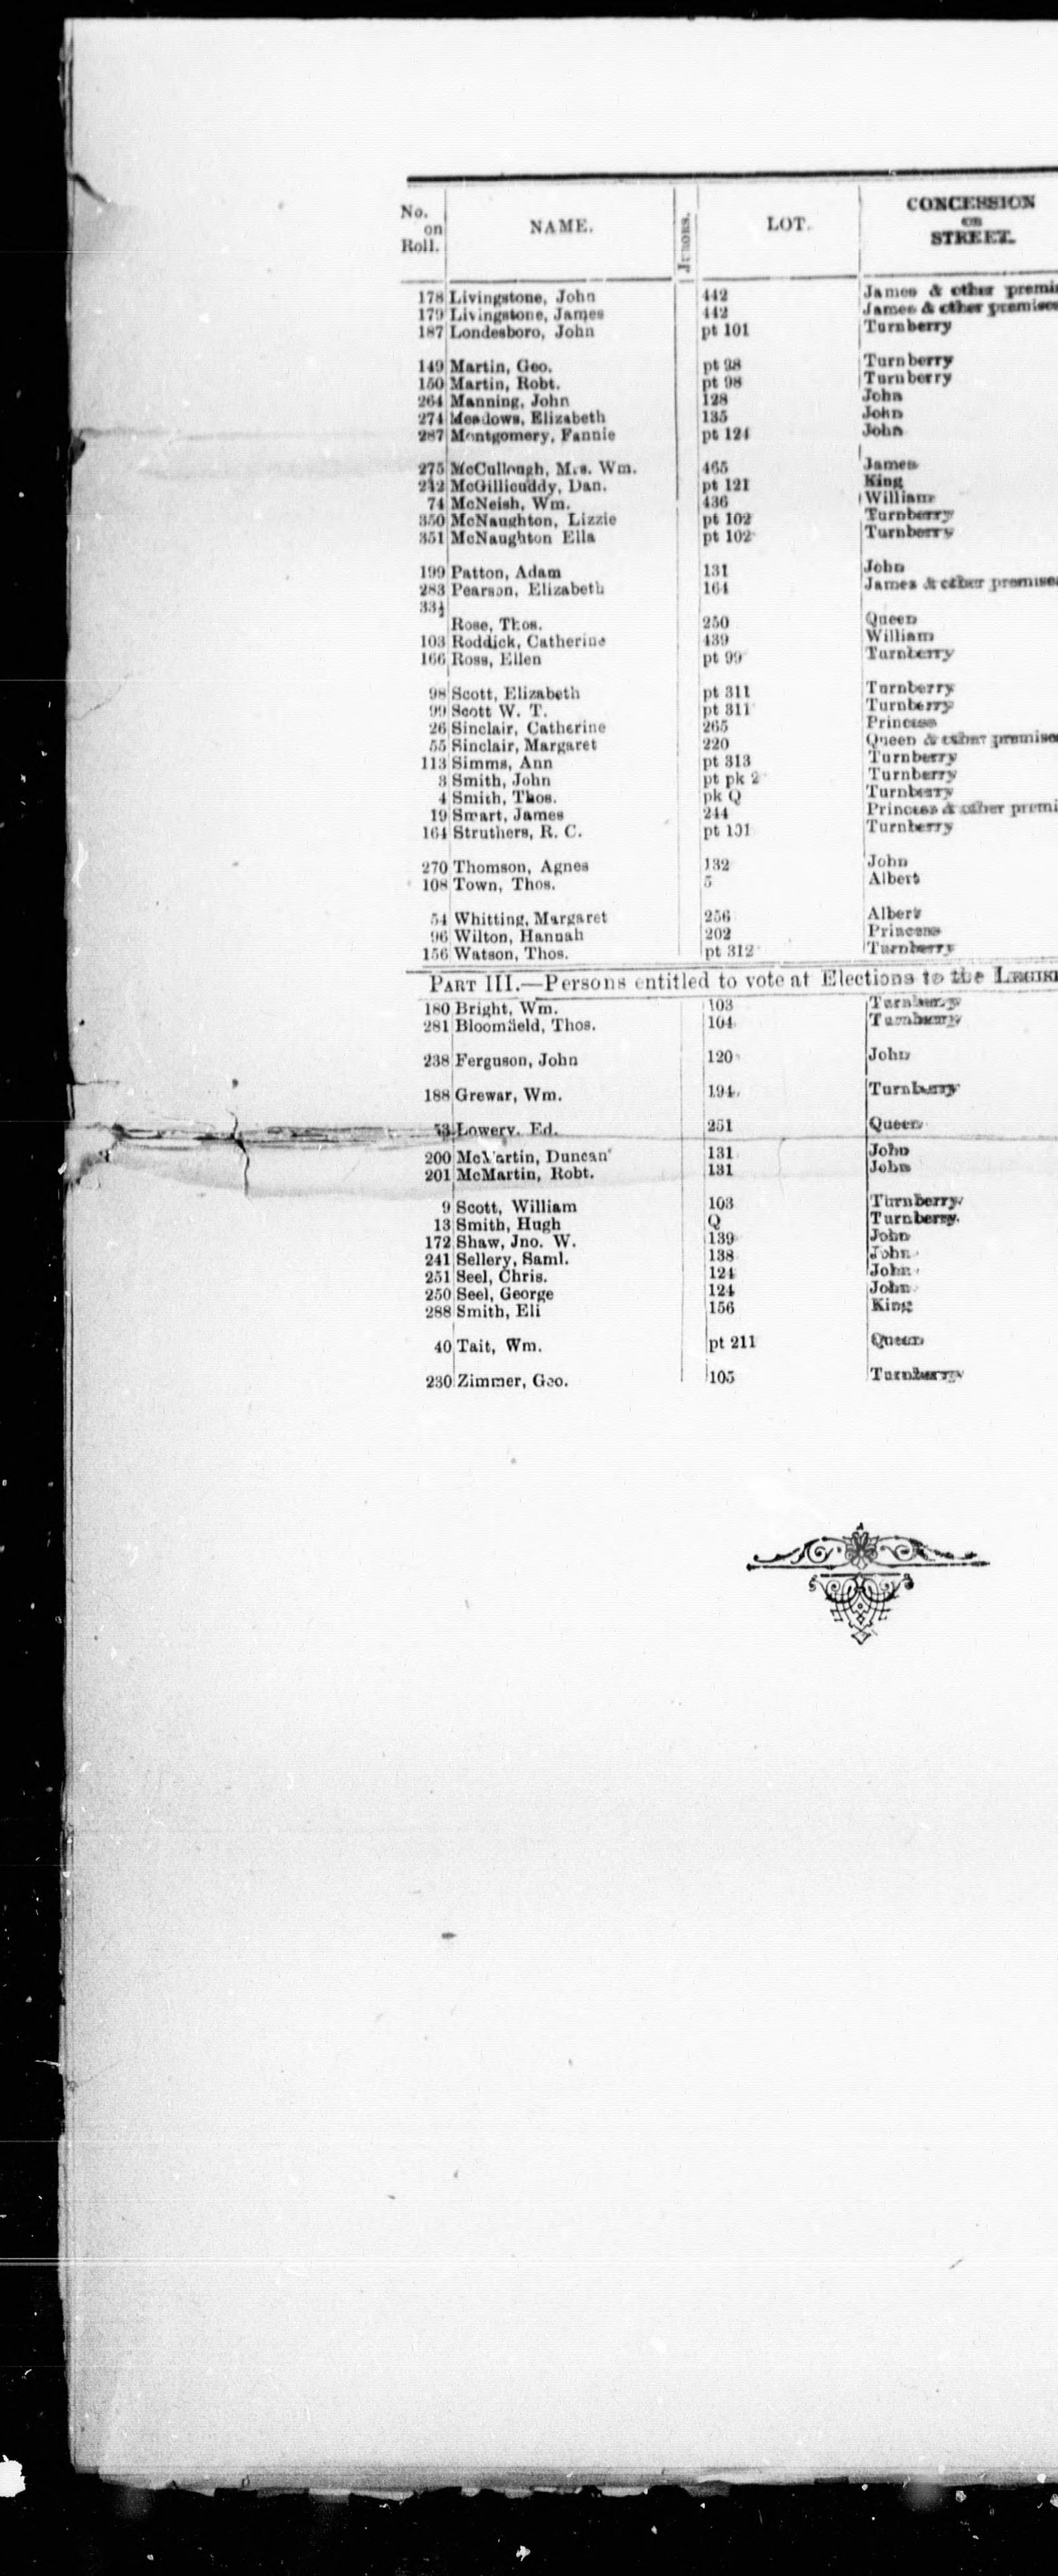 No. on Roll. NAME. JURORS. LOT. CONCESSION OR STREET.
178 Livingstone, John 442 James & other premi
179 Livingstone, James 442 James & other premises
187 Londesboro, John pt 101 Turnberry
149 Martin, Geo. pt 98 Turnberry
150 Martin, Robt. pt 98 Turnberry
264 Manning, John 128 John
274 Meadows, Elizabeth 135 John
287 Montgomery, Fannie pt 124 John
275 McCullough, Mrs. Wm. 465 James
242 McGillicuddy, Dan. pt 121 King
74 McNeish, Wm. 436 William
350 McNaughton, Lizzie pt 102 Turnberry
351 McNaughton Ella pt 102 Turnberry
199 Patton, Adam 131 John
283 Pearson, Elizabeth 164 James & other premises
33½
Rose, Thos. 250 Queen
103 Roddick, Catherine 439 William
166 Ross, Ellen pt 99 Turnberry
98 Scott, Elizabeth pt 311 Turnberry
99 Scott W. T. pt 311 Turnberry
26 Sinclair, Catherine 265 Princess
55 Sinclair, Margaret 220 Queen & other premises
113 Simms, Ann pt 313 Turnberry
3 Smith, John pt pk 2 Turnberry
4 Smith, Thos. pk Q Turnberry
19 Smart, James 244 Princess & other premi
164 Struthers, R. C. pt 101 Turnberry
270 Thomson, Agnes 132 John
108 Town, Thos. 5 Albert
54 Whitting, Margaret 256 Albert
96 Wilton, Hannah 202 Princess
156 Watson, Thos. pt 312 Turnberry
PART III.—Persons entitled to vote at Elections to the LEGISL
180 Bright, Wm. 103 Turnberry
281 Bloomfield, Thos. 104 Turnberry
238 Ferguson, John 120 John
188 Grewar, Wm. 194 Turnberry
53 Lowery, Ed. 251 Queen
200 McMartin, Duncan 131 John
201 McMartin, Robt. 131 John
9 Scott, William 103 Turnberry
13 Smith, Hugh Q Turnberry
172 Shaw, Jno. W. 139 John
241 Sellery, Saml. 138 John
251 Seel, Chris. 124 John
250 Seel, George 124 John
288 Smith, Eli 156 King
40 Tait, Wm. pt 211 Queen
230 Zimmer, Geo. 105 Turnberry